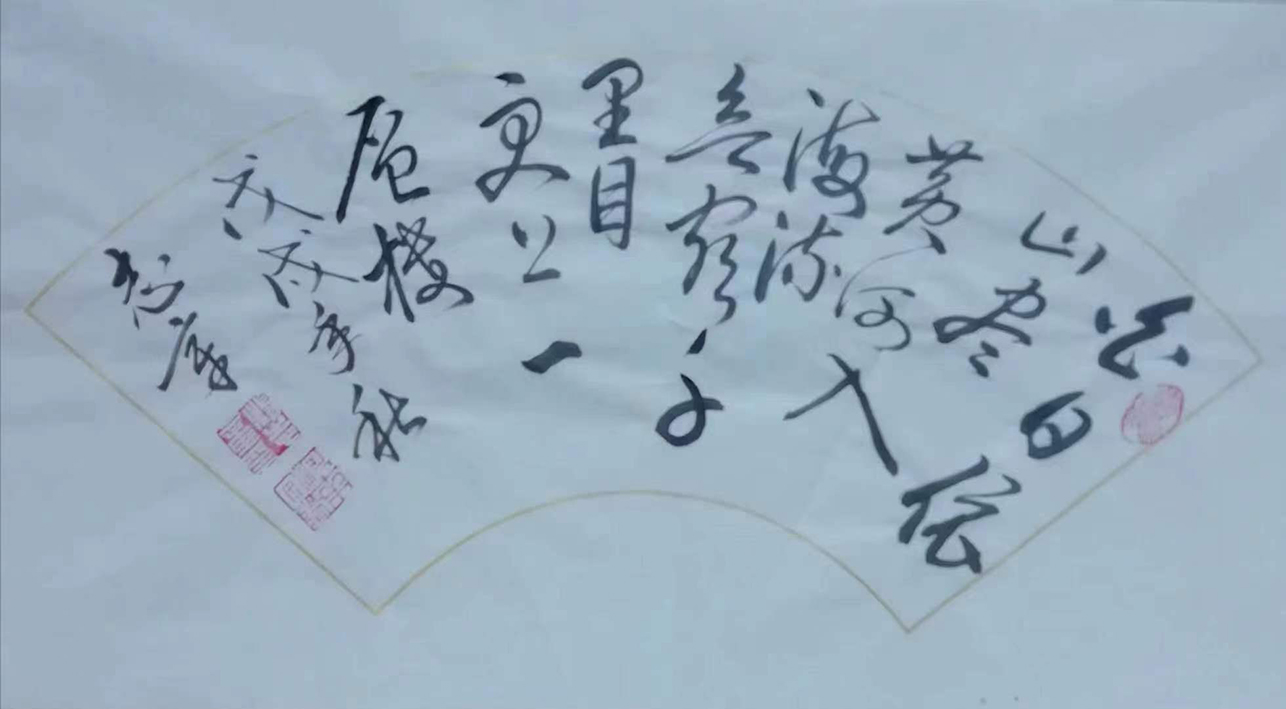 白日依
山尽
黄河入
海流
欲穷千
里目
更上一
层楼
戊戌年秋